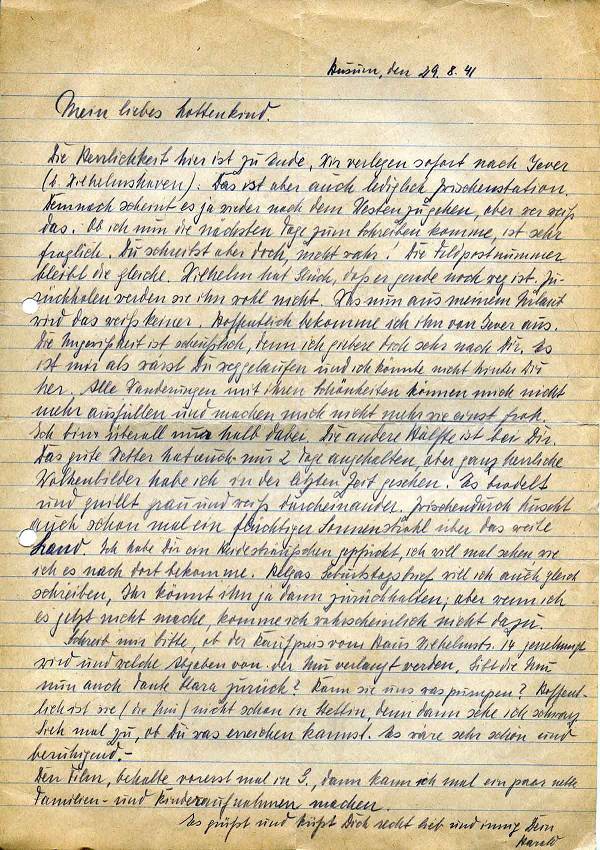 Husum, den 29.8.41
Mein liebes Lottenkind.
Die Herrlichkeit hier ist zu Ende, Wir verlegen sofort nach Jever
(b. Wilhelmshaven). Das ist aber auch lediglich Zwischenstation.
Demnach scheint es ja wieder nach dem Westen zu gehen, aber wer weiß
das. Ob ich nun die nächsten Tage zum Schreiben komme, ist sehr
fraglich. Du schreibst aber doch, nicht wahr? Die Feldpostnummer
bleibt die gleiche. Wilhelm hat Glück, daß er gerade noch weg ist. Zu-
rückholen werden sie ihn wohl nicht. Was nun aus meinem Urlaub
wird das weiß keiner. Hoffentlich bekomme ich ihn von Jever aus.
Die Ungewißheit ist scheußlich, denn ich giebere doch sehr nach Dir. Es
ist mir als wärst Du weggelaufen und ich könnte nicht hinter Dir
her. Alle Wanderungen mit ihren Schönheiten können mich nicht
mehr ausfüllen und machen mich nicht mehr wie einst froh.
Ich bin überall nur halb dabei, die andere Hälfte ist bei Dir.
Das gute Wetter hat auch nur 2 Tage angehalten, aber ganz herrliche
Wolkenbilder habe ich in der letzten Zeit gesehen. Es brodelt
und quillt grau und weiß durcheinander. Zwischendurch huscht
auch schon mal ein flüchtiger Sonnenstrahl über das weite
Land. Ich habe Dir ein Heidesträußchen gepflückt, ich will mal sehen, wie
ich es nach dort bekomme. Helgas Geburtstagsbrief will ich auch gleich
schreiben, Ihr könnt ihn ja dann zurückhalten, aber wenn ich
es jetzt nicht mache, komme ich wahrscheinlich nicht dazu.
Schreib mir bitte, ob der Kaufpreis vom Haus Wilhelmstr. 14 genehmigt
wird und welche Abgaben von der Mu verlangt werden. Gibt die Mu
nun auch Tante Clara zurück? Kann sie uns was pumpen? Hoffent-
lich ist sie (die Mu) nicht schon in Stettin, denn dann sehe ich schwarz
Sieh mal zu, ob Du was erreichen kannst. Es wäre sehr schön und
beruhigend.-
Den Film, behalte vorerst mal in G., dann kann ich mal ein paar nette
Familien- und Kinderaufnahmen machen.
Es grüßt und küßt Dich recht lieb und innig Dein
Harald